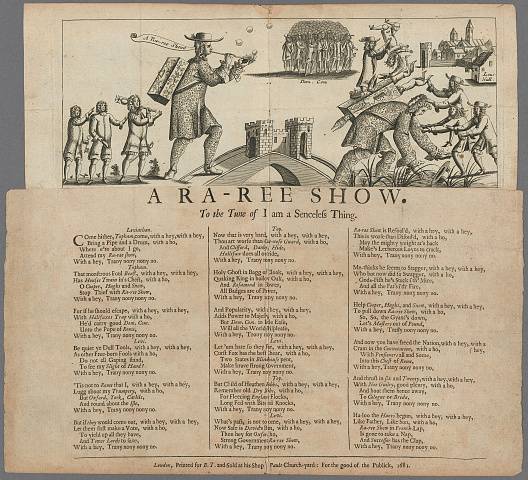 A Ra-ree Show
Dom. Com
Lons
Hall
A RA-REE SHOW.
To the Tune of I am a Senceless Thing.
Leviathan.
Come hither, Topham, come, with a hey, with a hey,
Bring a Pipe and a Drum, with a ho,
Where e're about I go,
Attend my Ra-ree show,
With a hey, Trany nony nony no.
Topham.
That monstrous Foul Beast, with a hey, with a hey,
Has Houses Twain in's Chest, with a ho,
O Cooper, Hughs and Snow,
Stop Thief with Ra-ree Show,
With a hey, Trany nony nony no.
For if he should escape, with a hey, with a hey,
With Trap, with a ho,
He'd carry good Dom. Com.
Unto the Pope of Rome,
With a hey, Trany nony nony no.
Lev.
Be quiet ye Dull Tools, with a hey, with a hey,
As other Free-born Fools with a ho,
Do not all Gaping stand,
To see my Slight of Hand?
With a hey, Trany nony nony no.
'Tis not to Rome that I, with a hey, with a hey,
Lugg about my Trumpery, with a ho,
But Oxford, York, Carlile,
And round about the Isle,
With a hey, Trany nony nony no.
But if they would come out, with a hey, with a hey,
Let them first make a Vote, with a ho,
To yield up all they have,
And Tower Lords to save,
With a hey, Trany nony nony no.
Top.
Now that is very hard, with a hey, with a hey,
Thou art worse than Guard, with a ho,
And Clifford, Danby, Hide,
does all outride,
With a hey, Trany nony nony no.
Holy Ghost in Bagg of Cloak, with a hey, with a hey,
Quaking King in hollow Oak, with a ho,
And Rosamond in Bower,
All Badges are of Power,
With a hey, Trany nony nony no.
And Popularity, with a hey, with a hey,
Adds Power to Majesty, with a ho,
But Dom. Com. in Ease,
Will all the World displease,
With a hey, Trany nony nony no.
Lev.
Let 'um hate so they fear, with a hey, with a hey,
Curst Fox has the best share, with a ho,
Two States in Blind house pent,
Make brave strong Government,
With a hey, Trany nony nony no.
Top.
But Child of Heathen Hobs, with a hey, with a hey,
Remember old Dry Bobs, with a ho,
For Fleecing England's Flocks,
Long Fed with Bits and Knocks,
With a hey, Trany nony nony no.
Lev.
What's past, is not to come, with a hey, with a hey,
Now Safe is David's Bum, with a ho,
Then hey for Oxford ho,
Strong Government, Ra-ree Show,
With a hey, Trany nony nony no.
Ra-ree Show is Resolv'd, with a hey, with a hey,
This is worse than Dissolv'd, with a ho,
May the mighty weight at's back
Make's Lecherous Loyns to crack,
With a hey, Trany nony nony no.
Me-thinks he seems to Stagger, with a hey, with a hey,
Who but now did so Swagger, with a ho,
Gods-fish he's Stuck i'th' Mire,
And all the Fat's i'th' Fire,
With a hey, Trany nony nony no.
Help Cooper, Hughs, and Snow, with a hey, with a hey,
To pull down Ra-ree Show, with a ho,
So, So, the Gyant's down,
Let's Masters out of Pound,
With a hey, Trany nony nony no.
And now you have freed the Nation, with a hey, with a hey,
Cram in the Convocation, with a ho,
With Pensioners all and Some,
Into this Chest of Rome,
With a hey, Trany nony nony no.
And thrust in Six and Twenty, with a hey, with a hey,
With Not Guiltys, good plenty, with a ho,
And hoot them hence away,
To Cologn or Breda,
With a hey, Trany nony nony no.
Ha-loo the Hunts begun, with a hey, with a hey,
Like Father, Like Son, with a ho,
Ra-ree Show in French Lap,
Is gone to take a Nap,
And Successor has the Clap,
With a hey, Trany nony nony no.
London, Printed for B. T. and Sold at his Shop Pauls Church-yard: For the good of the Publick, 1681.